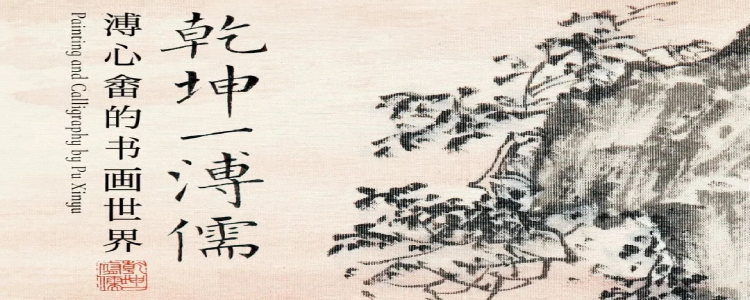 乾坤一溥儒
溥心畬的书画世界
Painting and Calligraphy by Pu Xinyu